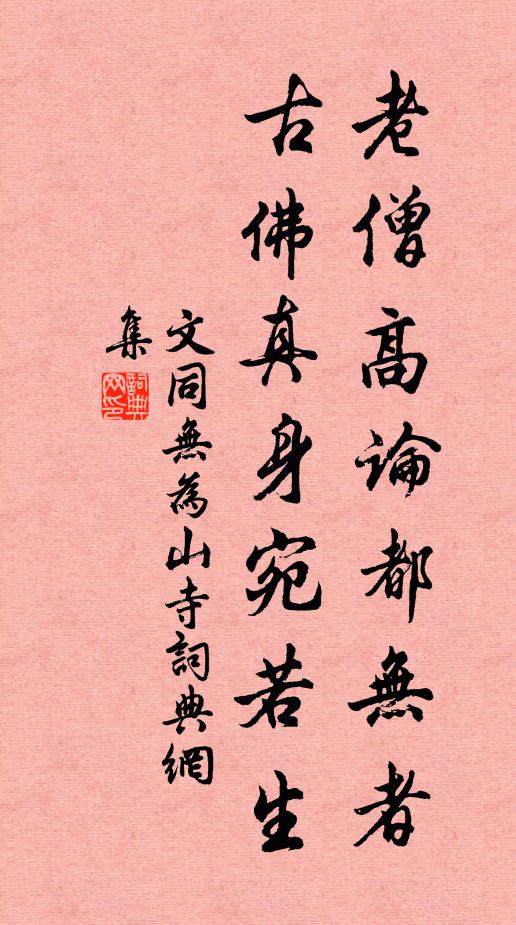 老僧高論都無者
古佛真身宛若生
文同無為山寺詞典網
集
詞典网印